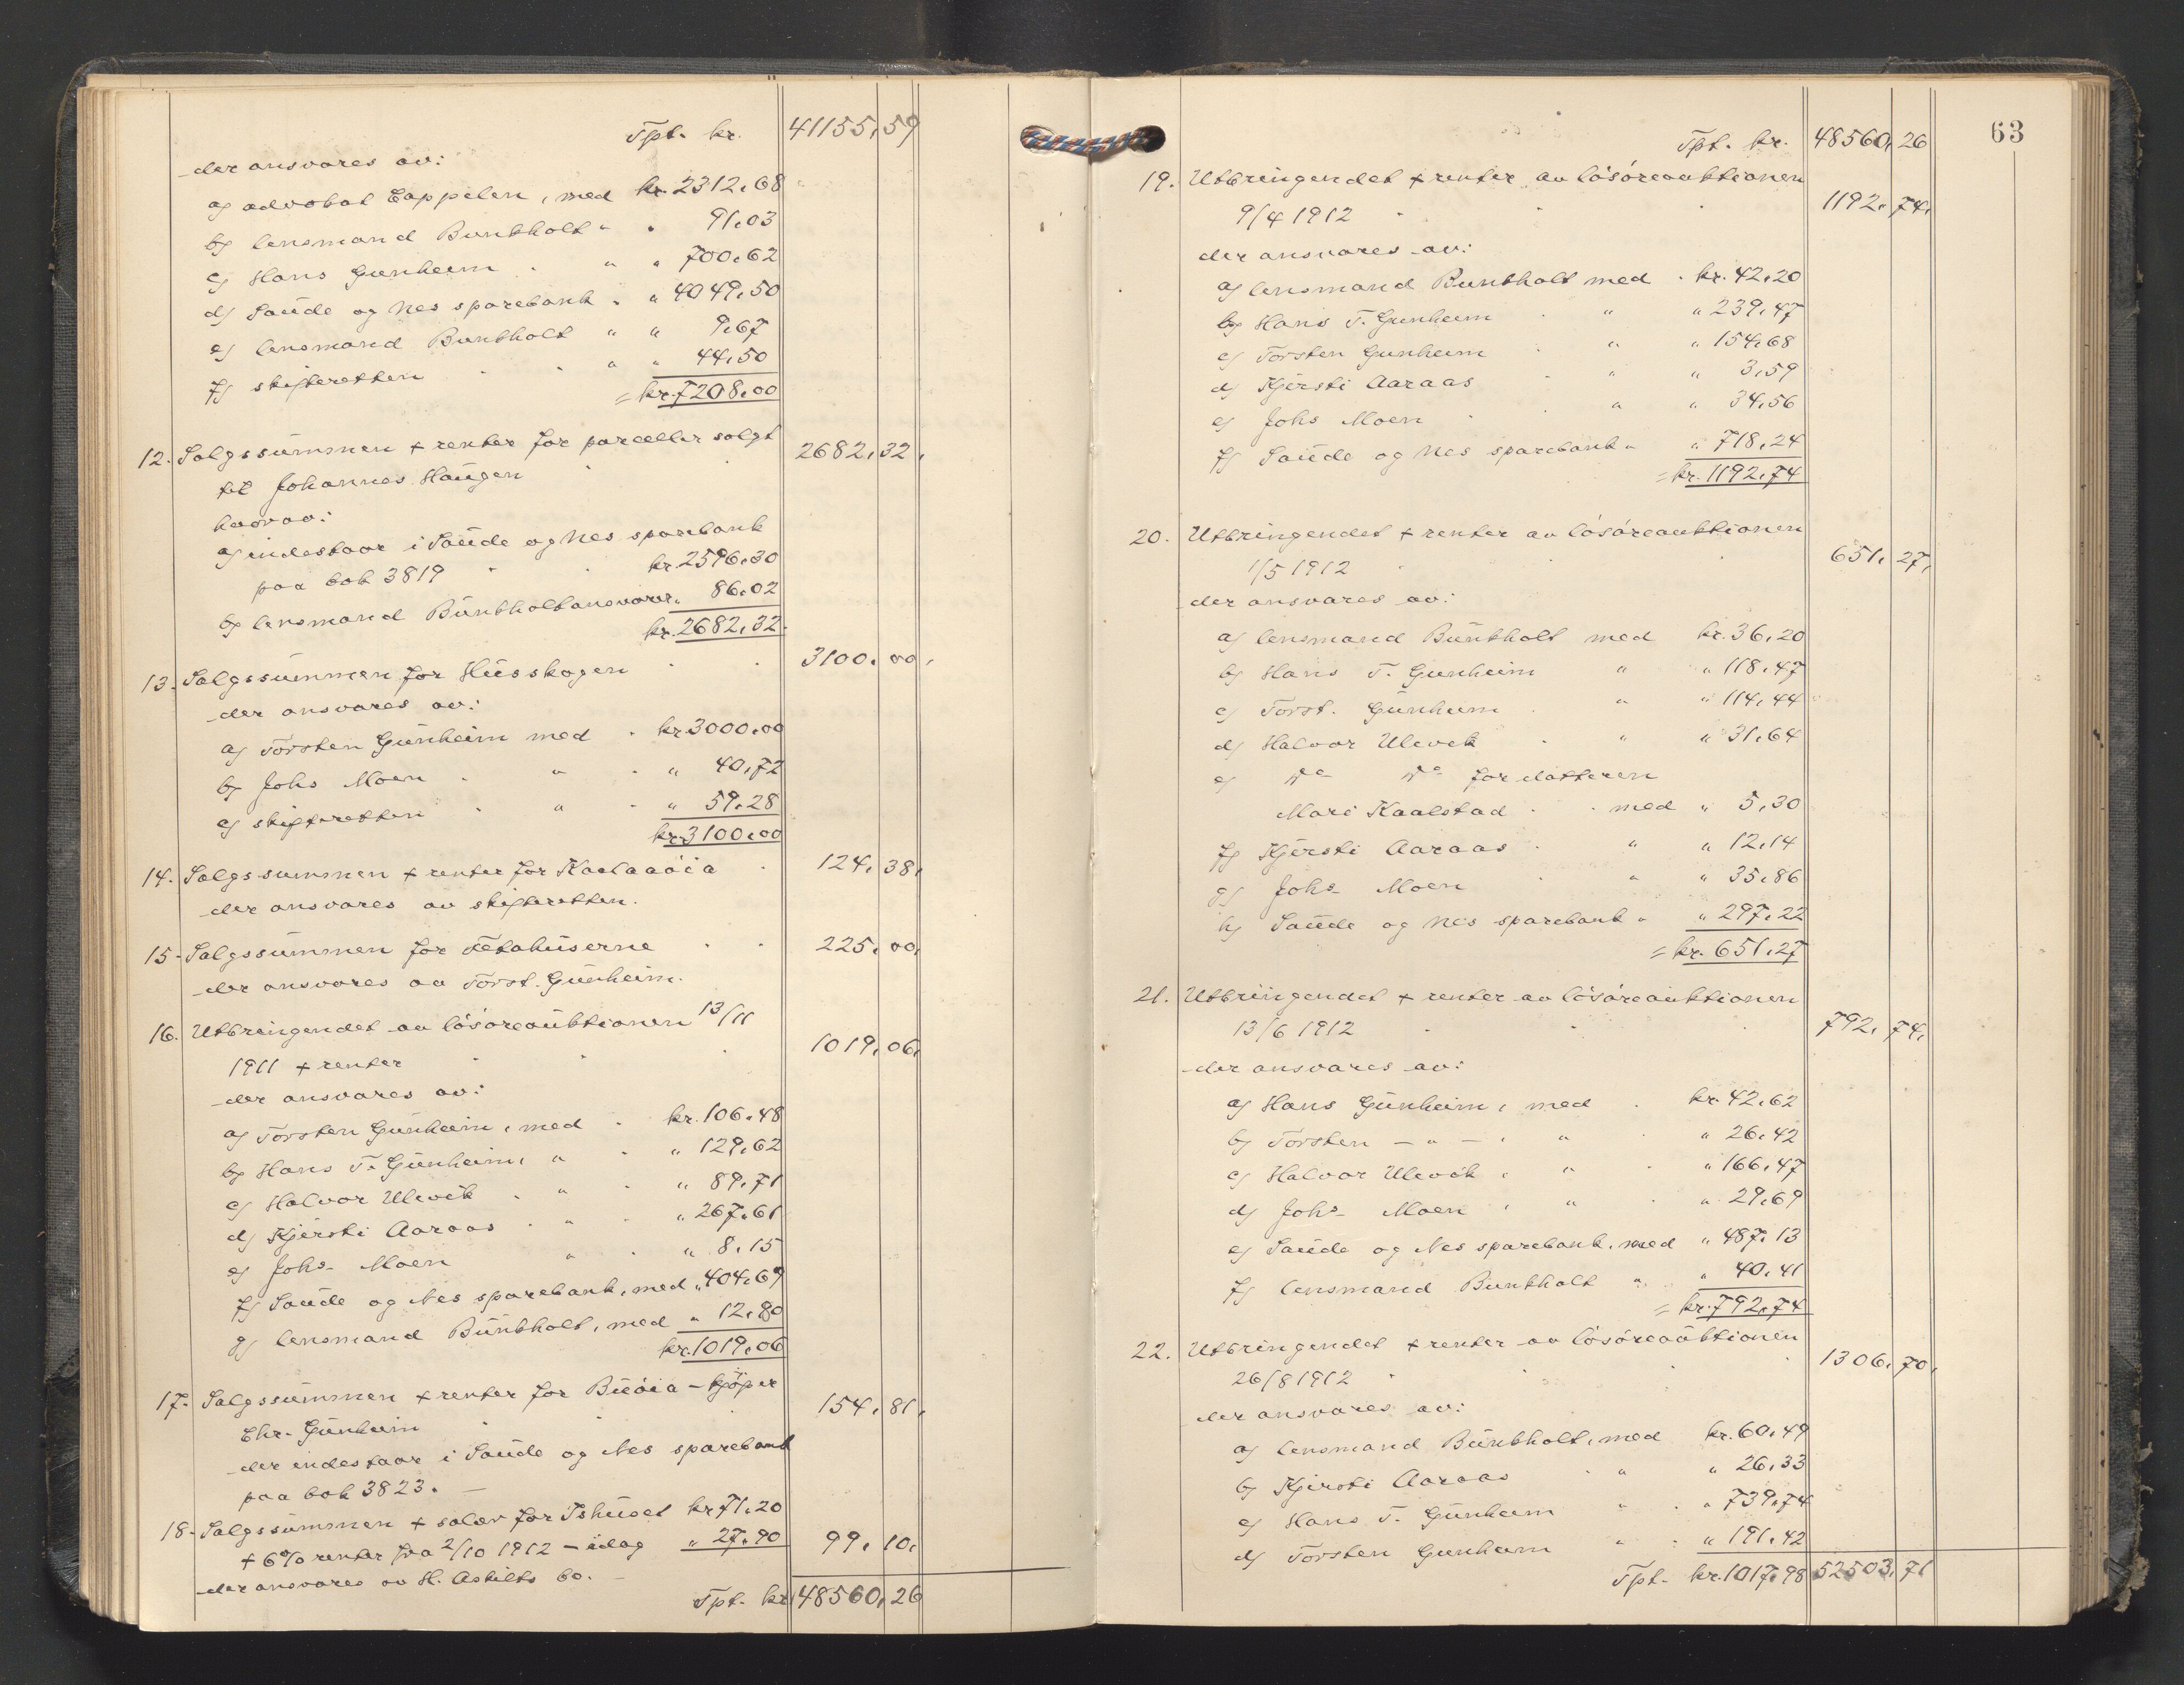 Tpt. kr. 41155,59
der ansvares av:
a) advokat Cappelen, med kr. 2312,68
b) lensmand Bunkholt " " 91,03
c) Hans Gunheim " " 700,62
d) Saude og Nes sparebank " " 4049,50
e) lensmand Bunkholt " " 9,67
f) skifteretten " " 44,50
= kr. 7208,00
12. Salgssummen + renter for parceller solgt
til Johannes Haugen 2682,32,
hvorav:
a) indestaar i Saude og Nes sparebank
paa bok 3819 kr. 2596,30
b) lensmand Bunkholt ansvarer " 86,02
kr. 2682,32
13. Salgssummen for Husskogen 3100,00,
der ansvares av:
a) Torsten Gunheim med kr. 3000,00
b) Johs Moen " " 40,72
c) skifteretten " " 59,28
kr. 3100,00
14. Salgssummen + renter for 124,38,
der ansvares av skifteretten.
15. Salgssummen for Tetahuserne 225,00,
der ansvares av Torst. Gunheim.
16. Utbringendet av løsøreauktionen 13/11
1911 + renter 1019,06,
der ansvares av:
a) Torsten Gunheim, med kr. 106,48
b) Hans T. Gunheim, " " 129,62
c) Halvor Ulevik " " 89,71
d) Kjersti Aaraas " " 267,61
e) Johs. Moen " " 8,15
f) Saude og Nes sparebank, med " 404,69
g) lensmand Bunkholt, med " 12,80
kr. 1019,06
17. Salgssummen + renter for Buøia – kjøper
Chr. Gunheim 154,81,
der indestaar i Saude og Nes sparebank
paa bok 3823. –
18. Salgssummen + salær for Ishuset kr 71,20
+ 6% renter fra 2/10 1912 – idag " 27,90 99,10,
der ansvares av H. Askilts bo. –
Tpt. kr. 48560,26
63
Tpt. kr. 48560,26
19. Utbringendet + renter av løsøreauktionen
9/4 1912 1192,74,
der ansvares av:
a) lensmand Bunkholt med kr. 42,20
b) Hans T. Gunheim " " 239,47
c) Torsten Gunheim " " 154,68
d) Kjersti Aaraas " " 3,59
e) Johs Moen " " 34,56
f) Saude og Nes sparebank " " 718,24
= kr. 1192,74
20. Utbringendet + renter av løsøreauktionen
1/5 1912 651,27,
der ansvares av:
a) lensmand Bunkholt med kr. 36,20
b) Hans T. Gunheim " " 118,47
c) Torst. Gunheim " " 114,44
d) Halvor Ulevik " " 31,64
e) Do Do for datteren
Mari Kaalstad med " 5,30
f) Kjersti Aaraas " " 12,14
g) Johs. Moen " " 35,86
h) Saude og Nes sparebank " " 297,22
= kr. 651,27
21. Utbringendet + renter av løsøreauktionen
13/6 1912 792,74,
der ansvares av:
a) Hans Gunheim, med kr. 42,62
b) Torsten – " – , " " 26,42
c) Halvor Ulevik , " " 166,47
d) Johs. Moen , " " 29,69
e) Saude og Nes sparebank, med " 487,13
f) lensmand Bunkholt " " 40,41
= kr. 792,74
22. Utbringendet + renter av løsøreauktionen
26/8 1912 1306,70,
der ansvares av:
a) lensmand Bunkholt, med kr. 60,49
b) Kjersti Aaraas " " 26,33
c) Hans T. Gunheim " " 739,74
d) Torsten Gunheim " " 191,42
Tpt. kr. 1017,98 52503,71